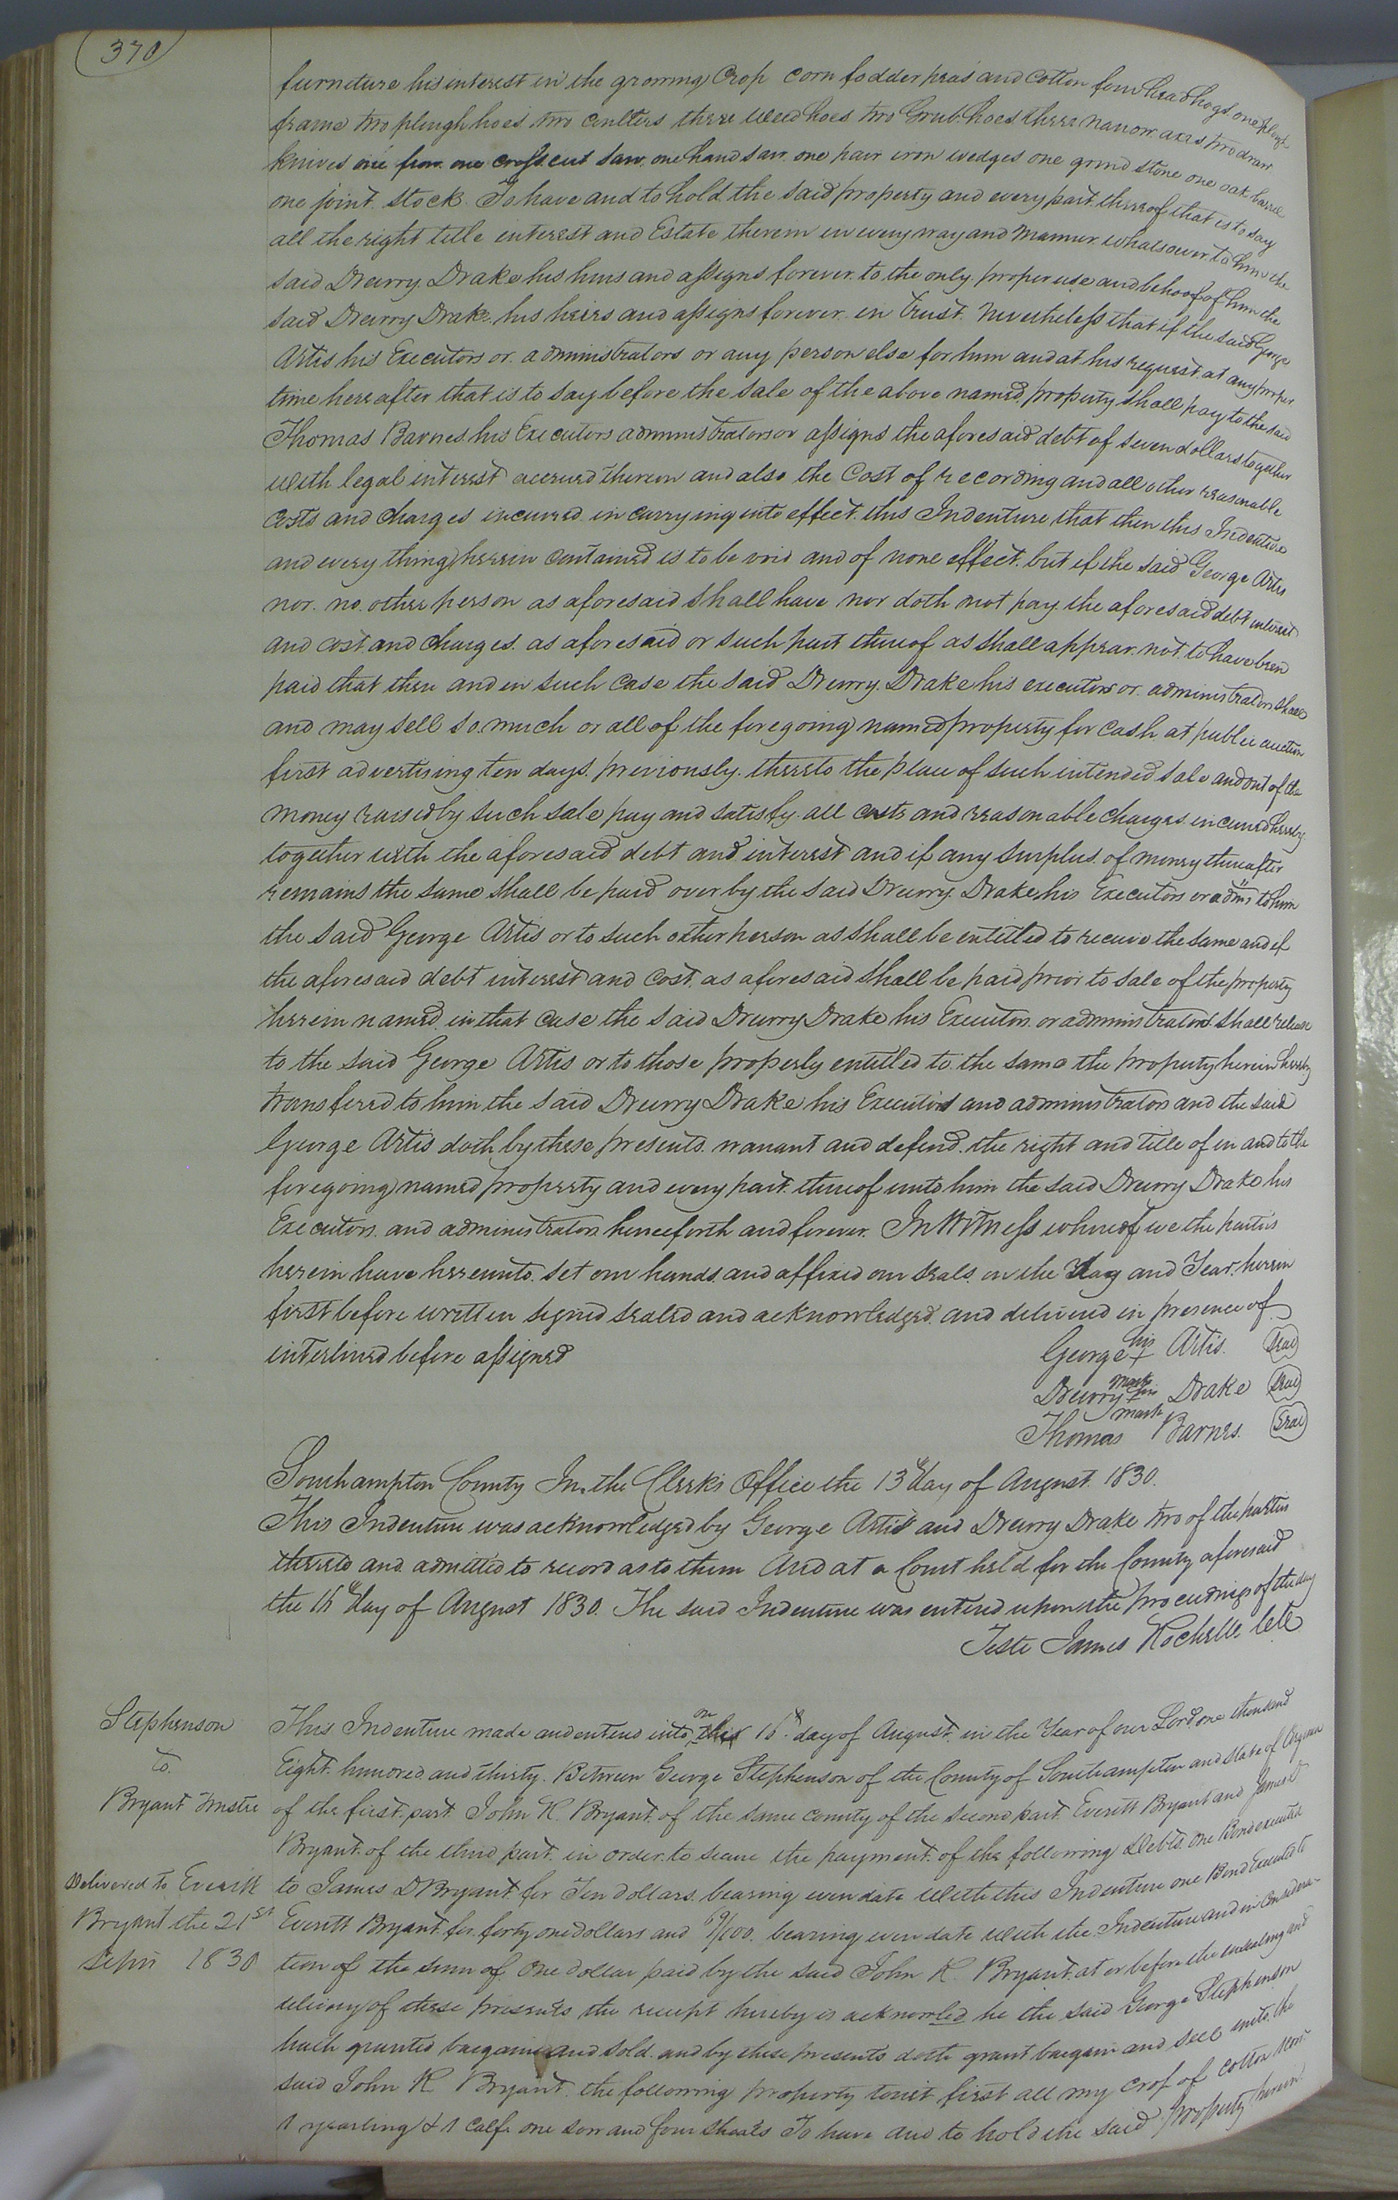 370
furneture his interest in the growing Crop corn fodder peas and Cotton four head hogs one plough
frame two plough hoes two coulters three weed hoes two Grub hoes three narrow axes two draw
knives one frow one cross cut saw one hand saw one pair iron wedges one grind stone one oak barrel
one joint stock To have and to hold the said property and every part thereof that is to say
all the right title interest and Estate therein in every way and Manner whatsoever to him the
said Drurry Drake his heirs and assigns forever to the only proper use and behoof of him the
said Drurry Drake his heirs and assigns forever in trust Nevertheless that if the said George
Artis his Executors or administrators or any person else for him and at his request at any proper
time hereafter that is to say before the sale of the above named property shall pay to the said
Thomas Barnes his Executors administrators or assigns the aforesaid debt of seven dollars together
with legal interest accrued thereon and also the Cost of recording and all other reasonable
costs and charges incurred in carrying into effect this Indenture that then this Indenture
and every thing herein contained is to be void and of none effect but if the said George Artis
nor no other person as aforesaid shall have nor doth not pay the aforesaid debt interest
and cost and charges as aforesaid or such part thereof as shall appear not to have been
paid that then and in such case the said Drurry Drake his executors or administrators shall
and may sell so much or all of the foregoing named property for cash at public auction
first advertising ten days previously thereto the place of such intended sale and out of the
money raised by such sale pay and satisfy all costs and reasonable charges incurred hereby
together with the aforesaid debt and interest and if any surplus of money thereafter
remains the same shall be paid over by the said Drurry Drake his Executors or adms to him
the said George Artis or to such other person as shall be entitled to receive the same and if
the aforesaid debt interest and cost as aforesaid shall be paid prior to sale of the property
herein named in that case the said Drurry Drake his Executors or administrators shall release
to the said George Artis or to those properly entitled to the same the property herein hereby
transfered to him the said Drurry Drake his Executors and administrators and the said
George Artis doth by these presents warrant and defend the right and title of in and to the
foregoing named property and every part thereof unto him the said Drurry Drake his
Executors and administrators henceforth and forever. In Witness whereof we the parties
herein have hereunto set our hands and affixed our seals on the day and Year herein
first before written signed sealed and acknowledged and delivered in presence of
interlined before assigned
George his + mark Artis Seal
Drurry his + mark Drake Seal
Thomas Barnes Seal
Southampton County In the Clerks Office the 13th day of August 1830.
This Indenture was acknowledged by George Artis and Drurry Drake two of the parties
thereto and admitted to record as to them And at a Court held for the County aforesaid
the 16th day of August 1830. The said Indenture was entered upon the proceedings of the day
Teste James Rochelle
Stephenson
to
Bryant Trustee
Delivered to Everitt
Bryant the 21st
Septr 1830
This Indenture made and entered into on this 16th day of August in the Year of our Lord one thousand
Eight hundred and thirty. Between George Stephenson of the County of Southampton and State of Virginia
of the first part John R. Bryant of the same county of the second part Everitt Bryant and James D
Bryant of the third part in order to secure the payment of the following Debts One Bond executed
to James D Bryant for Ten dollars bearing even date with this Indenture one Bond Executed to
Everitt Bryant for forty one dollars and 69/100 bearing even date with the Indenture and in considera-
tion of the sum of One dollar paid by the said John R. Bryant at or before the ensealing and
delivery of these presents the receipt hereby is acknowled he the said George Stephenson
hath granted bargained and sold and by these presents doth grant bargain and sell unto the
said John R Bryant the following property towit first all my crop of cotton
1 yearling & 1 calf one sow and four shoats To have and to hold the said property herein